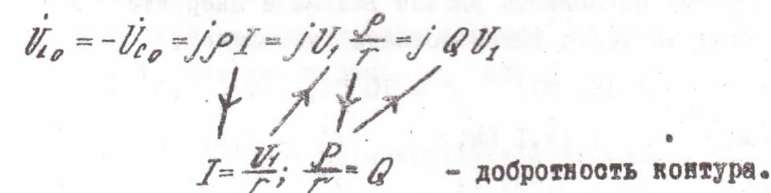 U̇_{L0} = -U̇_{C0} = jρI = jU₁ ρ/r = jQU₁
I = U₁/r; ρ/r = Q - добротность контура.